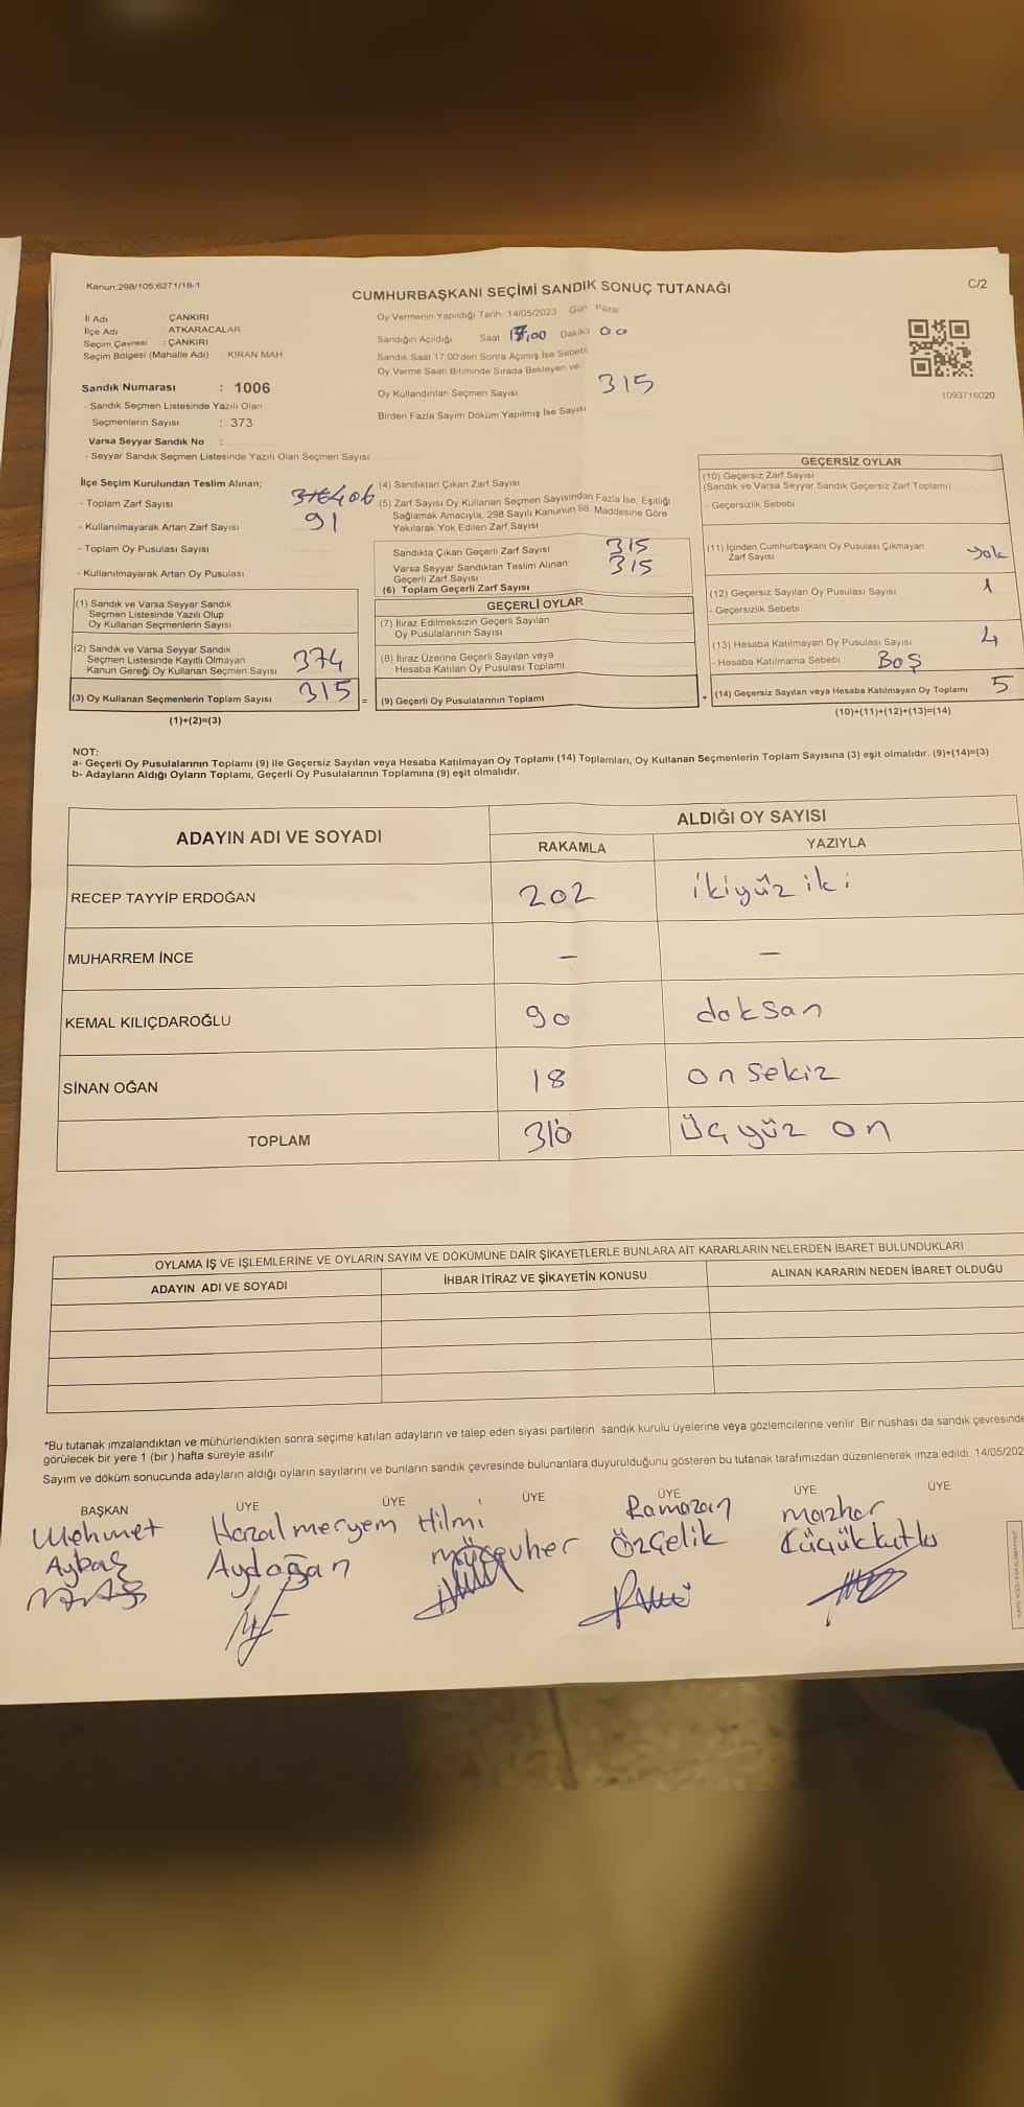 Kanun:298/105,6271/18-1
CUMHURBAŞKANI SEÇİMİ SANDIK SONUÇ TUTANAĞI
C/2
İl Adı ÇANKIRI
İlçe Adı ATKARACALAR
Seçim Çevresi : ÇANKIRI
Seçim Bölgesi (Mahalle Adı) : KIRAN MAH.
Sandık Numarası : 1006
- Sandık Seçmen Listesinde Yazılı Olan
Seçmenlerin Sayısı : 373
Varsa Seyyar Sandık No :
- Seyyar Sandık Seçmen Listesinde Yazılı Olan Seçmen Sayısı
Oy Vermenin Yapıldığı Tarih: 14/05/2023 Gün: Pazar
Sandığın Açıldığı Saat 17,00 Dakika 00
Sandık Saat 17:00'den Sonra Açılmış İse Sebebi
Oy Verme Saati Bitiminde Sırada Bekleyen ve
Oy Kullandırılan Seçmen Sayısı 315
Birden Fazla Sayım Döküm Yapılmış İse Sayısı
1093716020
İlçe Seçim Kurulundan Teslim Alınan;
- Toplam Zarf Sayısı 406
- Kullanılmayarak Artan Zarf Sayısı 91
- Toplam Oy Pusulası Sayısı
- Kullanılmayarak Artan Oy Pusulası
(1) Sandık ve Varsa Seyyar Sandık
Seçmen Listesinde Yazılı Olup
Oy Kullanan Seçmenlerin Sayısı
(2) Sandık ve Varsa Seyyar Sandık
Seçmen Listesinde Kayıtlı Olmayan
Kanun Gereği Oy Kullanan Seçmen Sayısı 374
(3) Oy Kullanan Seçmenlerin Toplam Sayısı 315 =
(1)+(2)=(3)
(4) Sandıktan Çıkan Zarf Sayısı
(5) Zarf Sayısı Oy Kullanan Seçmen Sayısından Fazla İse, Eşitliği
Sağlamak Amacıyla, 298 Sayılı Kanunun 98. Maddesine Göre
Yakılarak Yok Edilen Zarf Sayısı
Sandıkta Çıkan Geçerli Zarf Sayısı 315
Varsa Seyyar Sandıktan Teslim Alınan 315
Geçerli Zarf Sayısı
(6) Toplam Geçerli Zarf Sayısı
GEÇERLİ OYLAR
(7) İtiraz Edilmeksizin Geçerli Sayılan
Oy Pusulalarının Sayısı
(8) İtiraz Üzerine Geçerli Sayılan veya
Hesaba Katılan Oy Pusulası Toplamı
(9) Geçerli Oy Pusulalarının Toplamı
GEÇERSİZ OYLAR
(10) Geçersiz Zarf Sayısı
(Sandık ve Varsa Seyyar Sandık Geçersiz Zarf Toplamı)
- Geçersizlik Sebebi
(11) İçinden Cumhurbaşkanı Oy Pusulası Çıkmayan
Zarf Sayısı yok
(12) Geçersiz Sayılan Oy Pusulası Sayısı 1
- Geçersizlik Sebebi
(13) Hesaba Katılmayan Oy Pusulası Sayısı 4
- Hesaba Katılmama Sebebi BOŞ
+ (14) Geçersiz Sayılan veya Hesaba Katılmayan Oy Toplamı 5
(10)+(11)+(12)+(13)=(14)
NOT:
a- Geçerli Oy Pusulalarının Toplamı (9) ile Geçersiz Sayılan veya Hesaba Katılmayan Oy Toplamı (14) Toplamları, Oy Kullanan Seçmenlerin Toplam Sayısına (3) eşit olmalıdır. (9)+(14)=(3)
b- Adayların Aldığı Oyların Toplamı, Geçerli Oy Pusulalarının Toplamına (9) eşit olmalıdır.
ADAYIN ADI VE SOYADI
ALDIĞI OY SAYISI
RAKAMLA YAZIYLA
RECEP TAYYİP ERDOĞAN 202 ikiyüz iki
MUHARREM İNCE – –
KEMAL KILIÇDAROĞLU 90 doksan
SİNAN OĞAN 18 on sekiz
TOPLAM 310 üçyüz on
OYLAMA İŞ VE İŞLEMLERİNE VE OYLARIN SAYIM VE DÖKÜMÜNE DAİR ŞİKAYETLERLE BUNLARA AİT KARARLARIN NELERDEN İBARET BULUNDUKLARI
ADAYIN ADI VE SOYADI İHBAR İTİRAZ VE ŞİKAYETİN KONUSU ALINAN KARARIN NEDEN İBARET OLDUĞU
*Bu tutanak imzalandıktan ve mühürlendikten sonra seçime katılan adayların ve talep eden siyasi partilerin sandık kurulu üyelerine veya gözlemcilerine verilir. Bir nüshası da sandık çevresinde
görülecek bir yere 1 (bir ) hafta süreyle asılır.
Sayım ve döküm sonucunda adayların aldığı oyların sayılarını ve bunların sandık çevresinde bulunanlara duyurulduğunu gösteren bu tutanak tarafımızdan düzenlenerek imza edildi. 14/05/202
BAŞKAN ÜYE ÜYE ÜYE ÜYE ÜYE ÜYE
Mehmet Hazal meryem Hilmi Ramazan mazhar
Aybaş Aydoğan mücevher Özçelik Küçükkutlu